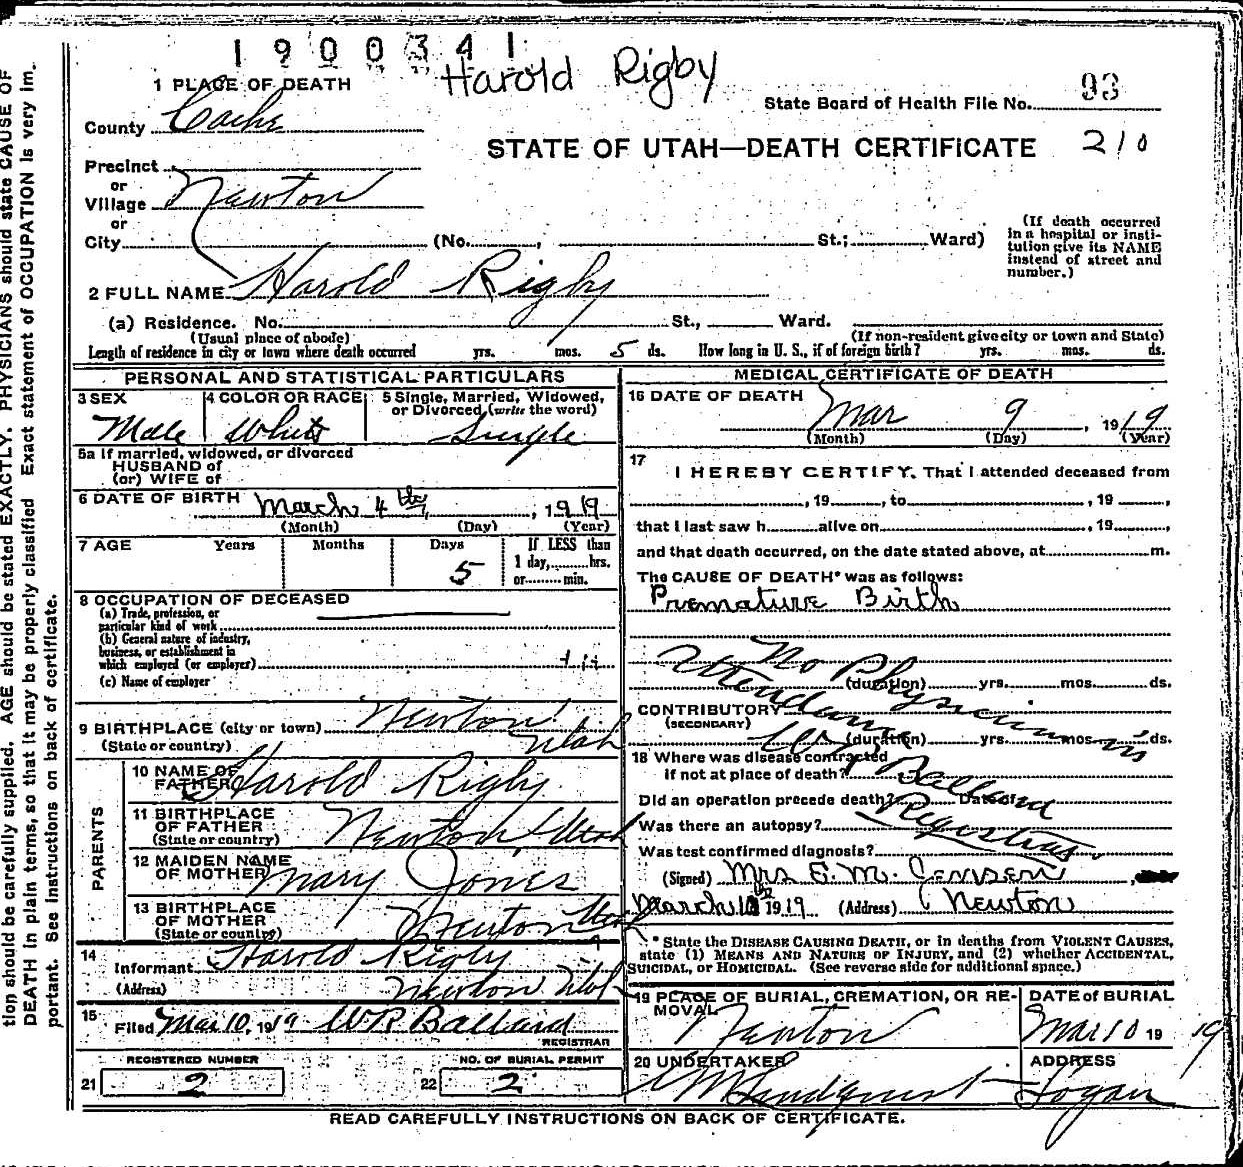 1900341
Harold Rigby
93
1 PLACE OF DEATH
State Board of Health File No.
County Cache
STATE OF UTAH—DEATH CERTIFICATE 210
Precinct
or
Village Newton
or
City (No. , St.; Ward)
(If death occurred in a hospital or institution give its NAME instead of street and number.)
2 FULL NAME Harold Rigby
(a) Residence. No. St., Ward.
(Usual place of abode) (If non-resident give city or town and State)
Length of residence in city or town where death occurred yrs. mos. 5 ds. How long in U. S., if of foreign birth? yrs. mos. ds.
PERSONAL AND STATISTICAL PARTICULARS
3 SEX 4 COLOR OR RACE 5 Single, Married, Widowed, or Divorced (write the word)
Male White Single
5a If married, widowed, or divorced
HUSBAND of
(or) WIFE of
6 DATE OF BIRTH March 4th, 1919
(Month) (Day) (Year)
7 AGE Years Months Days If LESS than
1 day, hrs.
5 or min.
8 OCCUPATION OF DECEASED
(a) Trade, profession, or
particular kind of work
(b) General nature of industry,
business, or establishment in
which employed (or employer)
(c) Name of employer
9 BIRTHPLACE (city or town) Newton
(State or country) Utah
PARENTS
10 NAME OF FATHER Harold Rigby
11 BIRTHPLACE OF FATHER Newton, Utah
(State or country)
12 MAIDEN NAME OF MOTHER Mary Jones
13 BIRTHPLACE OF MOTHER Newton Utah
(State or country)
14 Informant Harold Rigby
(Address) Newton Utah
15 Filed Mar 10, 1919 W R Ballard
REGISTRAR
REGISTERED NUMBER NO. OF BURIAL PERMIT
21 2 22 2
MEDICAL CERTIFICATE OF DEATH
16 DATE OF DEATH Mar 9, 1919
(Month) (Day) (Year)
17 I HEREBY CERTIFY, That I attended deceased from
, 19 , to , 19 ,
that I last saw h alive on , 19 ,
and that death occurred, on the date stated above, at m.
The CAUSE OF DEATH* was as follows:
Premature Birth
No Physician in Attendance
(duration) yrs. mos. ds.
CONTRIBUTORY
(SECONDARY)
(duration) yrs. mos. ds.
W R Ballard
Registrar
18 Where was disease contracted
if not at place of death?
Did an operation precede death? Date of
Was there an autopsy?
Was test confirmed diagnosis?
(Signed) Mrs E. M. Jensen,
March 10th 1919 (Address) Newton
* State the DISEASE CAUSING DEATH, or in deaths from VIOLENT CAUSES,
state (1) MEANS AND NATURE OF INJURY, and (2) whether ACCIDENTAL,
SUICIDAL, or HOMICIDAL. (See reverse side for additional space.)
19 PLACE OF BURIAL, CREMATION, OR REMOVAL DATE of BURIAL
Newton Mar 10 1919
20 UNDERTAKER ADDRESS
Logan
READ CAREFULLY INSTRUCTIONS ON BACK OF CERTIFICATE.
tion should be carefully supplied. AGE should be stated EXACTLY. PHYSICIANS should state CAUSE OF
DEATH in plain terms, so that it may be properly classified Exact statement of OCCUPATION is very im.
portant. See instructions on back of certificate.